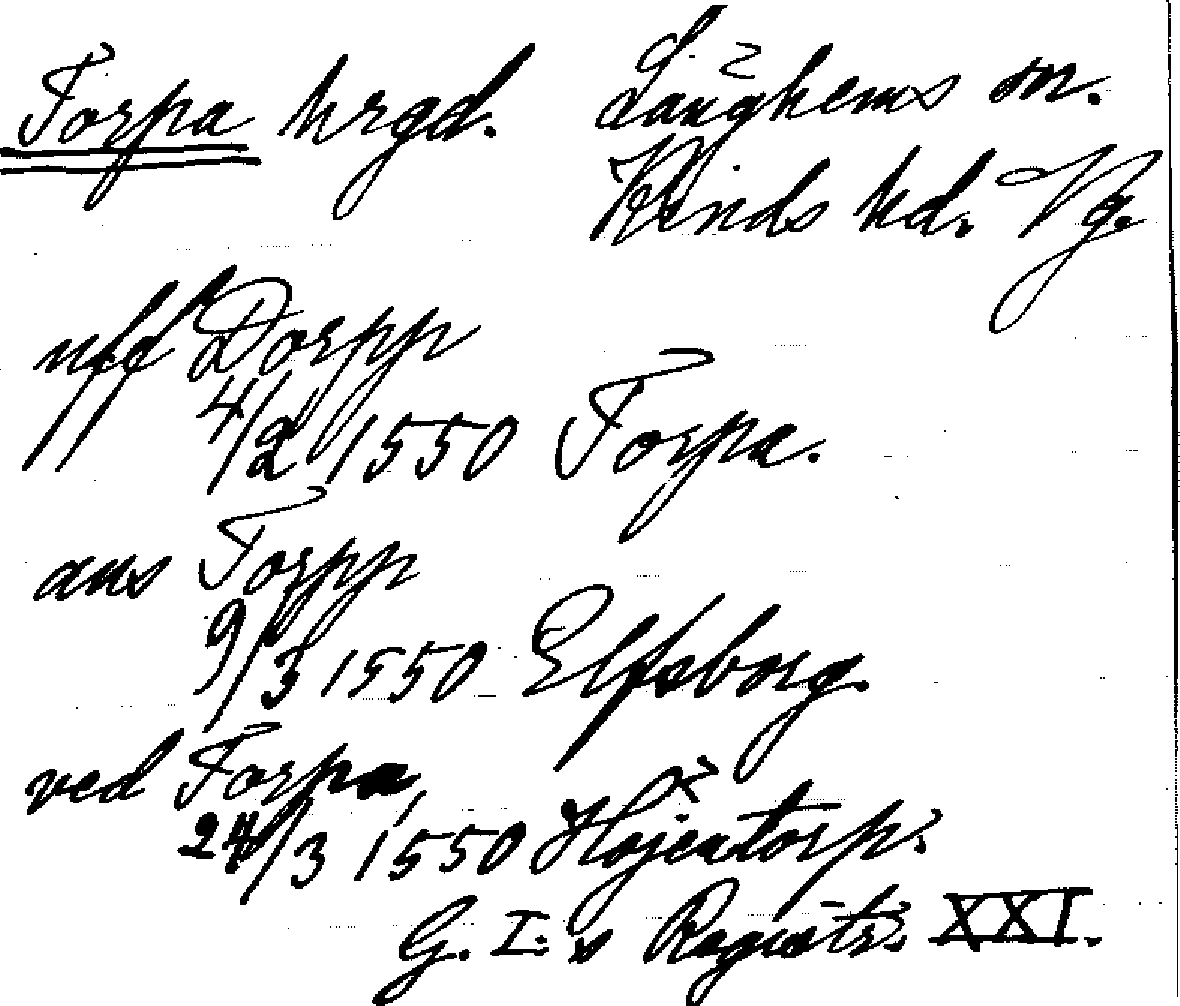 Torpa hrgd. Länghems sn.
Kinds hd. Vg.
uff Dorpp
4/2 1550 Torpa.
aus Torpp
9/3 1550 Elfsborg.
ved Torpa,
24/3 1550 Höjentorp.
G. I:s Registr. XXI.